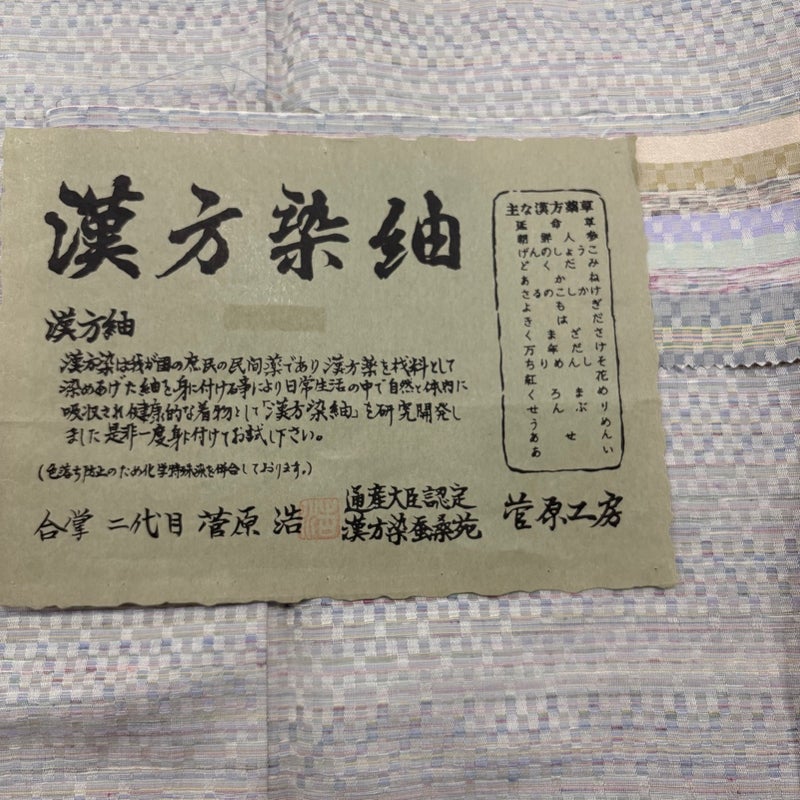 漢方染紬
漢方紬
漢方染は我が国の庶民の民間薬であり漢方薬を材料として
染めあげた紬を身に付ける事により日常生活の中で自然と体内に
吸収され健康的な着物として「漢方染紬」を研究開発し
ました是非一度身に付けてお試し下さい。
(色落ち防止のため化学特殊染を併合しております。)
合掌 二代目 菅原 浩
通産大臣認定
漢方染蚕桑苑
菅原工房
主な漢方薬草
延命草
朝鮮人参
げんのしょうこ
どくだみ
あかね
さるのこしかけ
よもぎ
きはだ
くまざさ
万年だけ
ちりめんしそ
紅花
くろまめ
せんぶり
あせん
あい